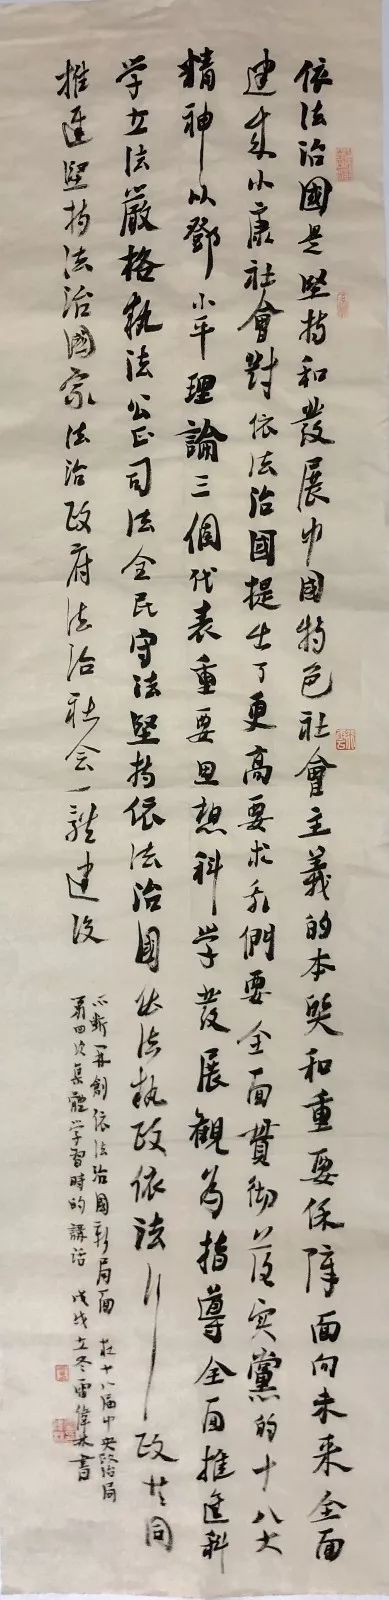 依法治國是堅持和發展中國特色社會主義的本质和重要保障面向未来全面
建成小康社會對依法治國提出了更高要求我們要全面貫彻落实黨的十八大
精神以鄧小平理論三個代表重要思想科学發展觀為指導全面推进科
学立法嚴格執法公正司法全民守法堅持依法治國依法執政依法行政共同
推進堅持法治國家法治政府法治社会一體建设
不断開創依法治國新局面 在十八届中央政治局
第四次集體学習時的講话 戊戌立冬雷偉
書